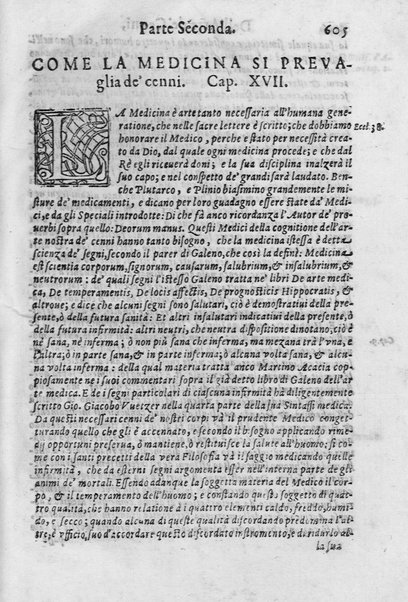 Parte Seconda. 605
COME LA MEDICINA SI PREVA-
glia de' cenni. Cap. XVII.
LA Medicina è arte tanto necessaria all'humana gene-
ratione, che nelle sacre lettere è scritto; che dobbiamo Eccl. 38.
honorare il Medico, perche è stato per necessità crea-
to da Dio, dal quale ogni medicina procede; e che dal
Rè egli riceuerà doni; e la sua disciplina inalzerà il
suo capo; e nel conspetto de' grandi sarà laudato. Ben-
che Plutarco, e Plinio biasimino grandemente le mi-
sture de' medicamenti, e dicano per loro guadagno essere state da' Medi-
ci, e da gli Speciali introdotte: Di che fà anco ricordanza l'Autor de' pro-
uerbi sopra quello: Deorum manus. Questi Medici della cognitione dell'ar-
te nostra de' cenni hanno tanto bisogno, che la medicina istessa è detta
scienza de' segni, secondo il parer di Galeno, che così la definì: Medicina
est scientia corporum, signorum, causarum, salubrium, & insalubrium, &
neutrorum: de' quali segni l'istesso Galeno tratta ne' libri De arte medi-
ca, De temperamentis, De locis affectis, De prognosticis Hippocratis, &
altroue; e dice che alcuni segni sono salutari, ciò è demostratiui della pre-
sente, ò della futura sanità: Et altri insalutari indicatiui della presente, ò
della futura infirmità: altri neutri, che neutra dispositione dinotano, ciò è
nè sana, nè inferma; ò non più sana che inferma, ma mezana trà l'vna, e
l'altra; ò in parte sana, & in parte inferma; ò alcuna volta sana, & alcu-
na volta inferma: della qual materia tratta anco Martino Acacia co-
piosamente ne i suoi commentari sopra il già detto libro di Galeno dell'ar
te medica. E de i segni particolari di ciascuna infirmità hà diligentemente
scritto Gio. Giacobo Vuetzer nella quarta parte della sua Sintassi medica.
Da questi accertati cenni de' nostri corpi và il prudente Medico conget-
turando quello che gli è accennato, e secondo il bisogno applicando rime-
dij opportuni preserua, ò mantiene, ò restituisce la salute all'huomo: si co
me con i santi precetti della vera Filosofia và il saggio medicando quelle
infirmità, che da esterni segni argomenta esser nell'interna parte de gli
animi de' mortali. Essendo adunque la soggetta materia del Medico il cor-
po, & il temperamento dell'huomo; e constando questo soggetto di quat-
tro qualità, che hanno relatione à i quattro elementi caldo, freddo, humi-
do, e secco; quando alcuna di queste qualità discordando predomina l'al-
tre, è vfficio, suo d'accordare questo discordato instromento, e di ridurlo al-
la sua